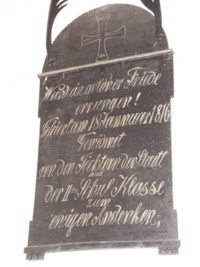 Ward ein goldner Friede
errungen!
Gefeiert am 18 Januar 1816
Gewidmet
von den Töchtern der Stadt
aus
der II Schul Klasse
zum
ewigen Andenken,